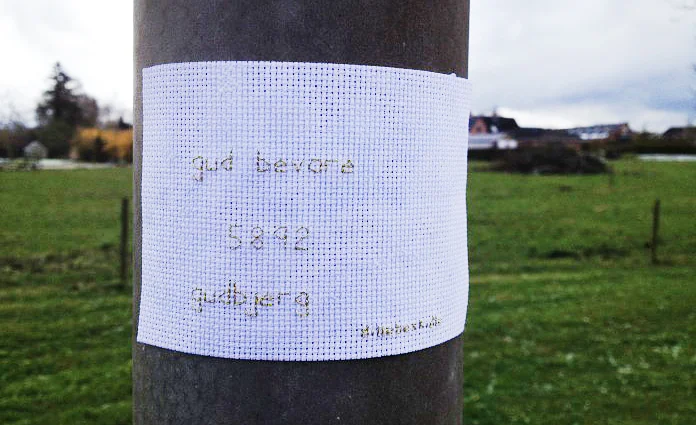 gud bevare
5892
gudbjerg